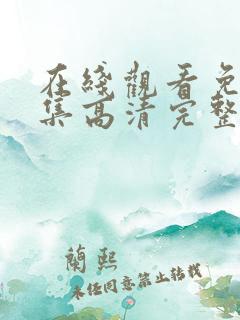 在綫觀看免
集高清完整
蘭熙
未經同意禁止轉載